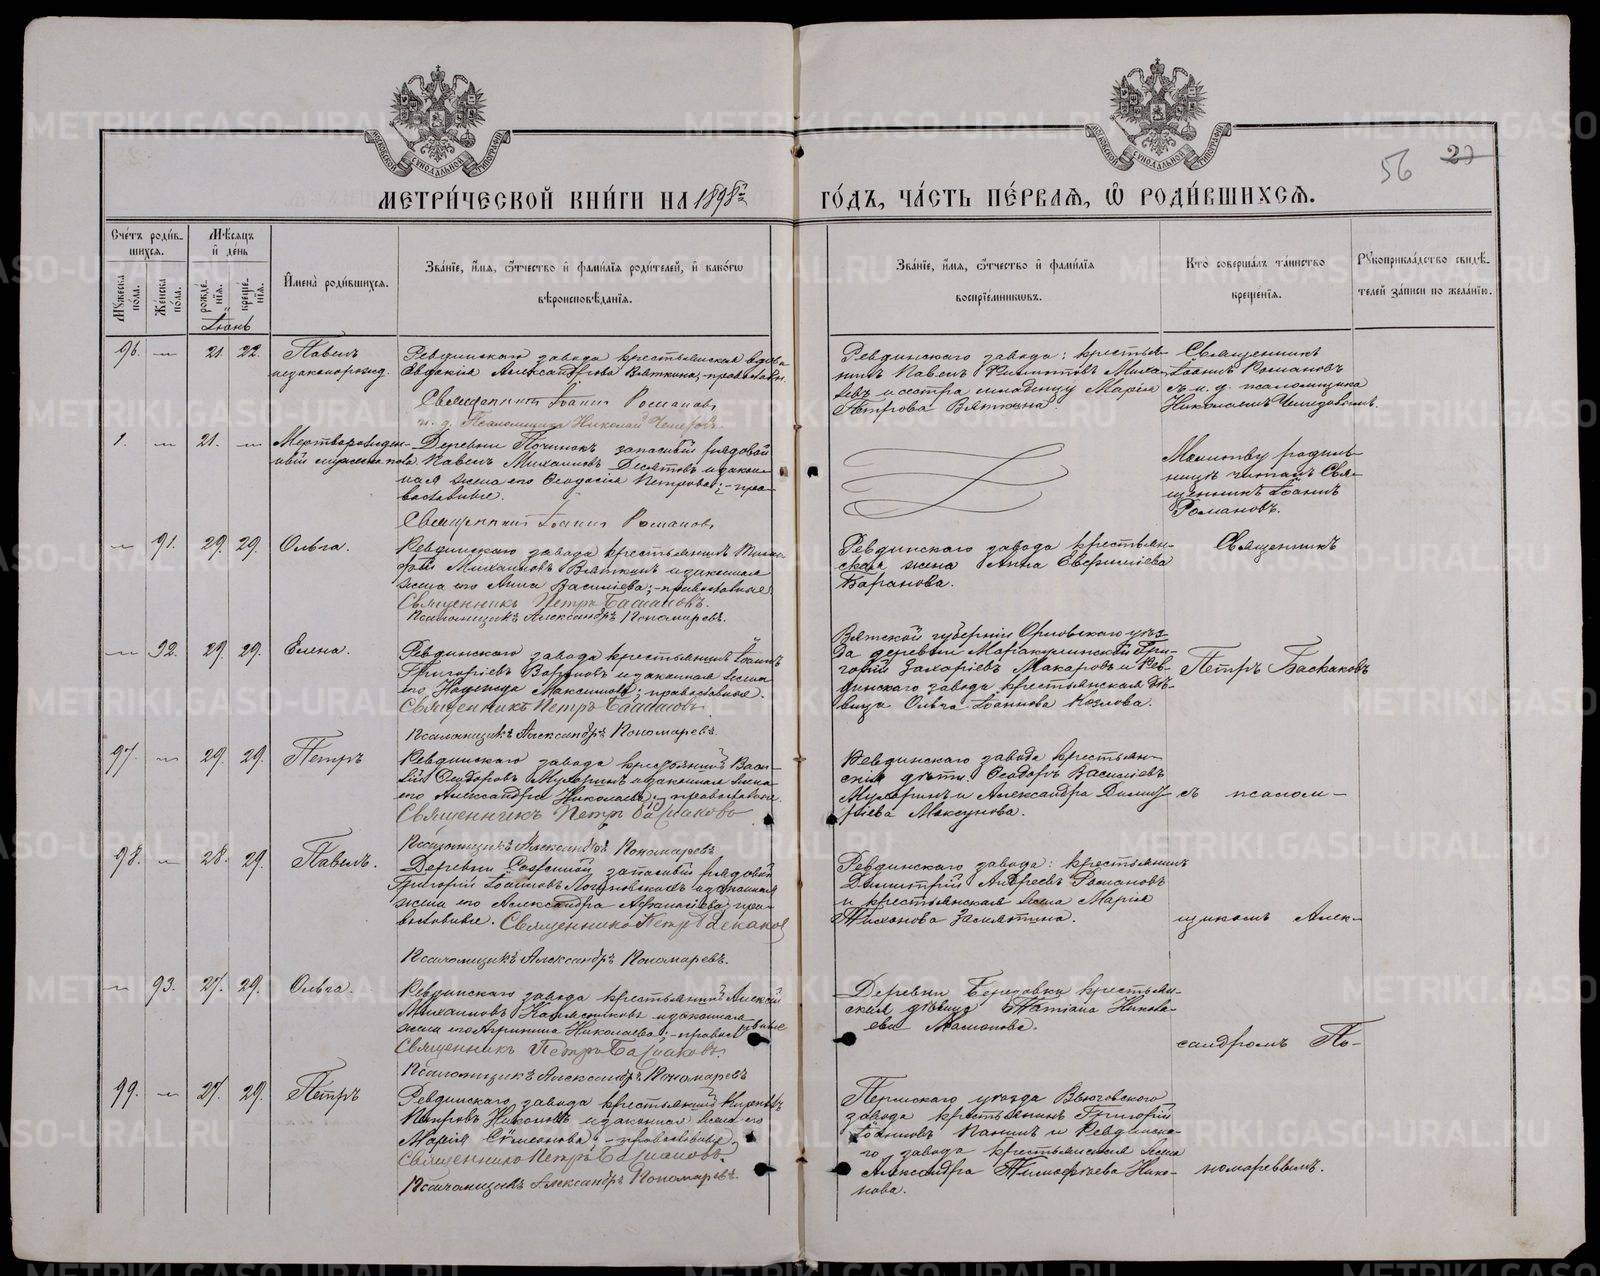 МОСКОВСКОЙ СУНОДАЛЬНОЙ ТИПОГРАФІИ
МОСКОВСКОЙ СУНОДАЛЬНОЙ ТИПОГРАФІИ
56 27
МЕТРИ́ЧЕСКОЙ КНИ́ГИ НА 1898й ГО́ДЪ, ЧА́СТЬ ПЕ́РВАѦ, Ѡ РОДИ́ВШИХСѦ.
Сче́тъ роди́в-
шихсѧ.
Мꙋжеска по́ла.
Же́нска по́ла.
Мѣ́сѧцъ
и҆ де́нь
рожде́нїѧ.
креще́нїѧ.
Іюнь
И҆мена̀ роди́вшихсѧ.
Зва́нїе, и҆́мѧ, ѻ҆́тчество и҆ фами́лїѧ роди́телей, и҆ како́гѡ
вѣроисповѣ́данїѧ.
Зва́нїе, и҆́мѧ, ѻ҆́тчество и҆ фами́лїѧ
воспрїе́мникѡвъ.
Кто̀ соверша́лъ та́инство
креще́нїѧ.
Рꙋкоприкла́дство свидѣ́-
телей за́писи по жела́нїю.
96. — 21. 22. Павелъ
незаконорожд.
Ревдинскаго завода крестьянская вдова
Евдокія Александрова Вяткина; православн.
Священникъ Іоаннъ Романовъ
и. д. Псаломщика Николай
Ревдинскаго завода: крестья-
нинъ Павелъ Филиповъ
и сестра младенцу Марія
Петрова Вяткина.
Священникъ
Іоаннъ Романовъ
съ и. д. псаломщика
Николаемъ
1. — 21. — Мертворожден-
ный мужеска пола.
Деревни Починокъ запасный рядовой
Павелъ Михаиловъ Десятовъ и закон-
ная жена его Феодосія Петрова; пра-
вославные.
Священникъ Іоаннъ Романовъ
Молитву родиль-
ницѣ читалъ Свя-
щенникъ Іоаннъ
Романовъ.
— 91. 29. 29. Ольга.
Ревдинскаго завода крестьянинъ
Михаиловъ Вяткинъ и законная
жена его Анна Василіева; православные
Священникъ Петръ Баскаковъ.
Псаломщикъ Александръ Пономаревъ.
Ревдинскаго завода крестьян-
ская жена Анна
Баранова.
Священникъ
— 92. 29. 29. Елена.
Ревдинскаго завода крестьянинъ Іоаннъ
Григоріевъ и законная жена
его Надежда Максимова; православные.
Священникъ Петръ Баскаковъ
Псаломщикъ Александръ Пономаревъ.
Вятской губерніи Орловскаго уѣз-
да деревни Гри-
горій Захаріевъ Макаровъ и Рев-
динскаго завода крестьянская дѣ-
вица Ольга Іоаннова Козлова.
Петръ Баскаковъ
97. — 29. 29. Петръ
Ревдинскаго завода крестьянинъ Васи-
лій Феодоровъ Мухоринъ и законная жена
его Александра Николаева; православные.
Священникъ Петръ Баскаковъ
Псаломщикъ Александръ Пономаревъ
Ревдинскаго завода крестьян-
скія дѣти: Феодоръ Василіевъ
Мухоринъ и Александра Димит-
ріева Моксунова.
съ псалом-
98. — 28. 29. Павелъ.
Деревни запасный рядовой
Григорій Іоанновъ и законная
жена его Александра Афанасіева; пра-
вославные. Священникъ Петръ Баскаковъ
Псаломщикъ Александръ Пономаревъ.
Ревдинскаго завода: крестьянинъ
Димитрій Андреевъ Романовъ
и крестьянская жена Марія
Тихонова
щикомъ Алек-
— 93. 27. 29. Ольга.
Ревдинскаго завода крестьянинъ Алексій
Михаиловъ и законная
жена его Агрипина Николаева; православные
Священникъ Петръ Баскаковъ.
Псаломщикъ Александръ Пономаревъ
Деревни Березовки крестьян-
ская дѣвица Татіана Никола-
ева
сандромъ По-
99. — 27. 29. Петръ
Ревдинскаго завода крестьянинъ
Петровъ Никоновъ и законная жена его
Марія Сѵмеонова; православные.
Священникъ Петръ Баскаковъ.
Псаломщикъ Александръ Пономаревъ.
Пермскаго уѣзда
завода крестьянинъ Григорій
Іоанновъ Панинъ и Ревдинска-
го завода крестьянская жена
Александра Тимофѣева Нико-
нова.
номаревымъ.
METRIKI.GASO-URAL.RU